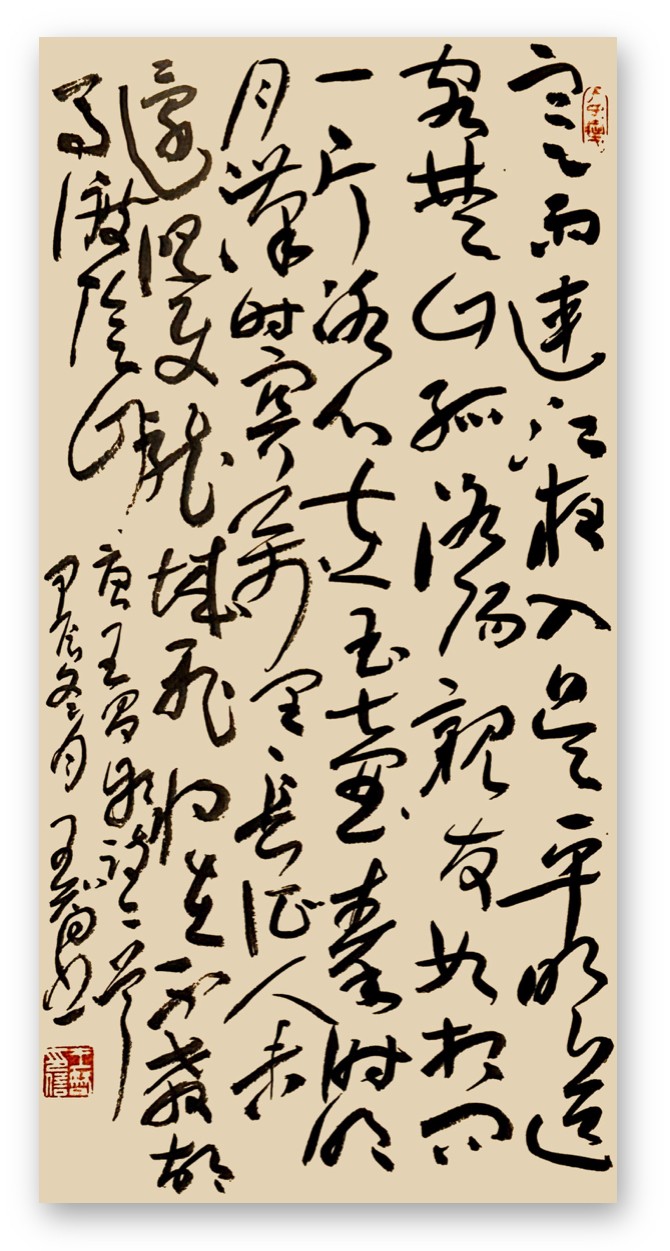 寒雨連江夜入吴平明送
客楚山孤洛陽親友如相问
一片冰心在玉壺秦时明
月漢时關萬里長征人未
還但使龍城飛将在不教胡
馬度陰山
唐王昌龄詩二首
甲辰冬月王